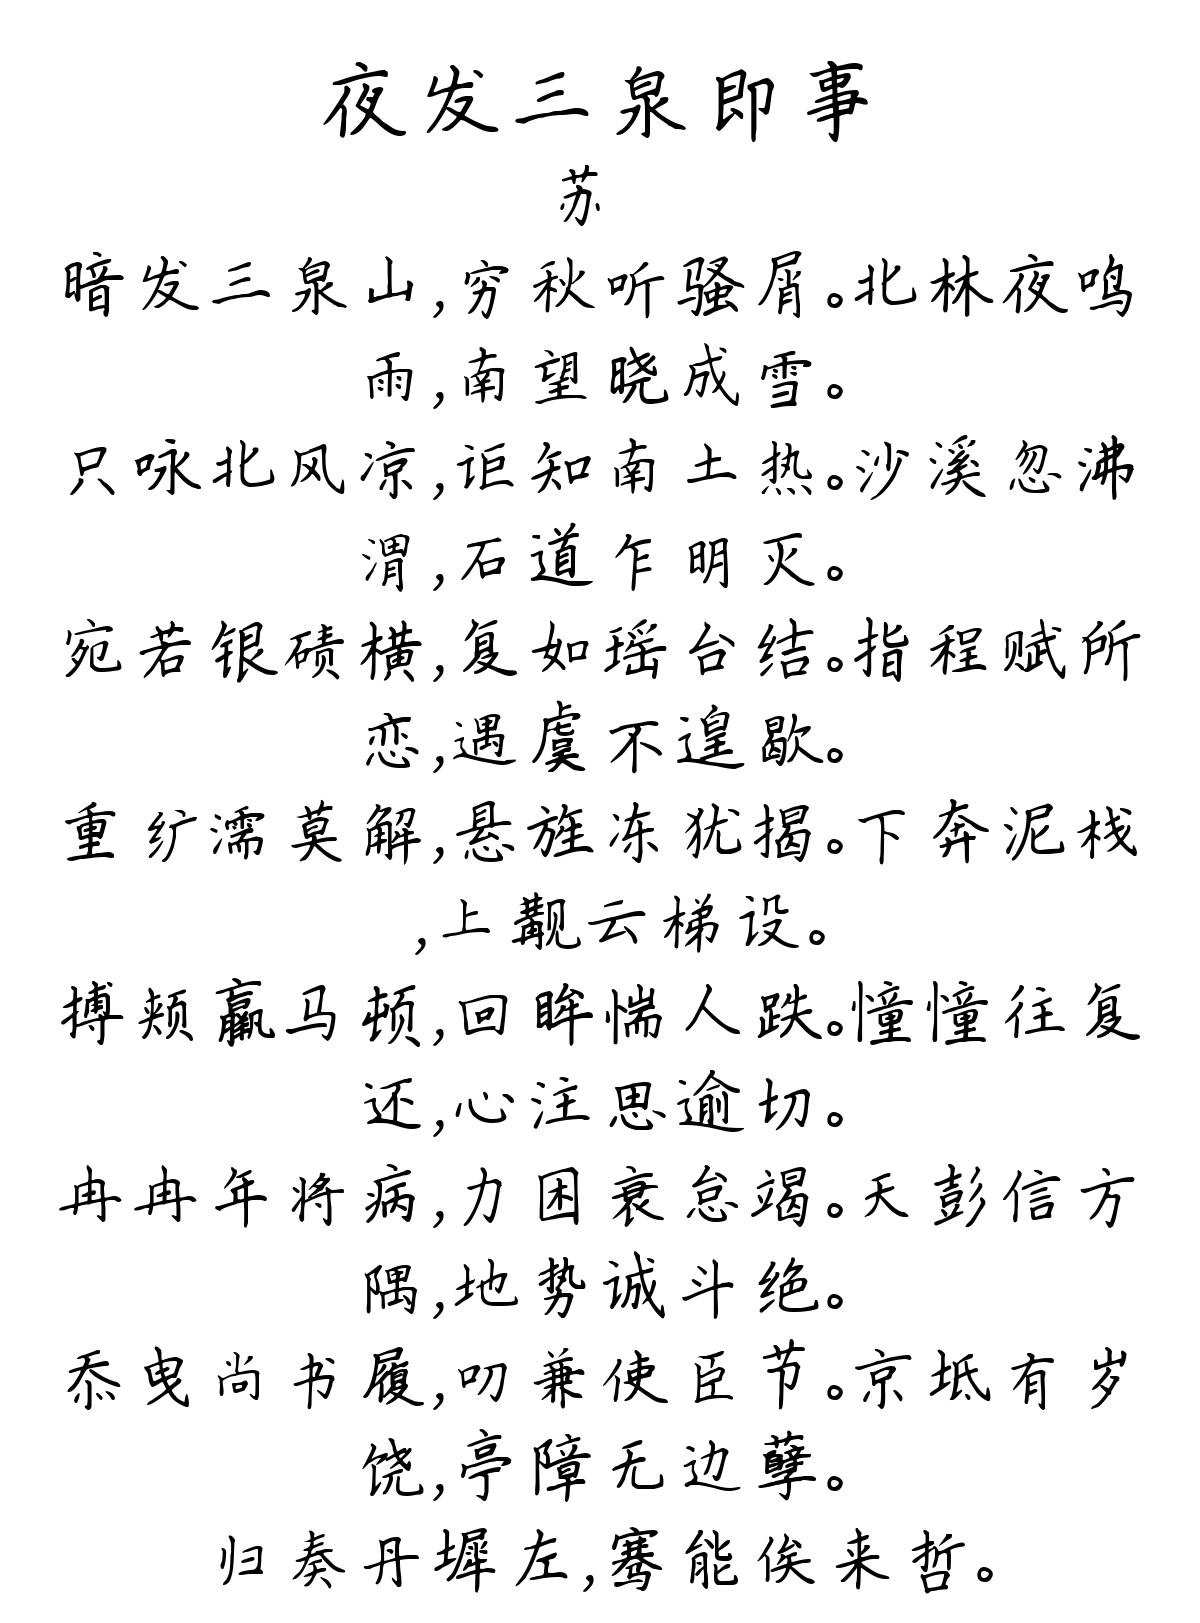 夜发三泉即事
苏
暗发三泉山,穷秋听骚屑。北林夜鸣
雨,南望晓成雪。
只咏北风凉,讵知南土热。沙溪忽沸
渭,石道乍明灭。
宛若银碛横,复如瑶台结。指程赋所
恋,遇虞不遑歇。
重纩濡莫解,悬旌冻犹揭。下奔泥栈
,上觏云梯设。
搏颊羸马顿,回眸惴人跌。憧憧往复
还,心注思逾切。
冉冉年将病,力困衰怠竭。天彭信方
隅,地势诚斗绝。
忝曳尚书履,叨兼使臣节。京坻有岁
饶,亭障无边孽。
归奏丹墀左,骞能俟来哲。